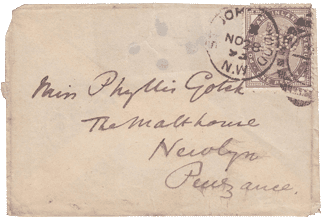 NO
N.W
Miss Phyllis Gotch
The Malthouse
Newlyn
Penzance.